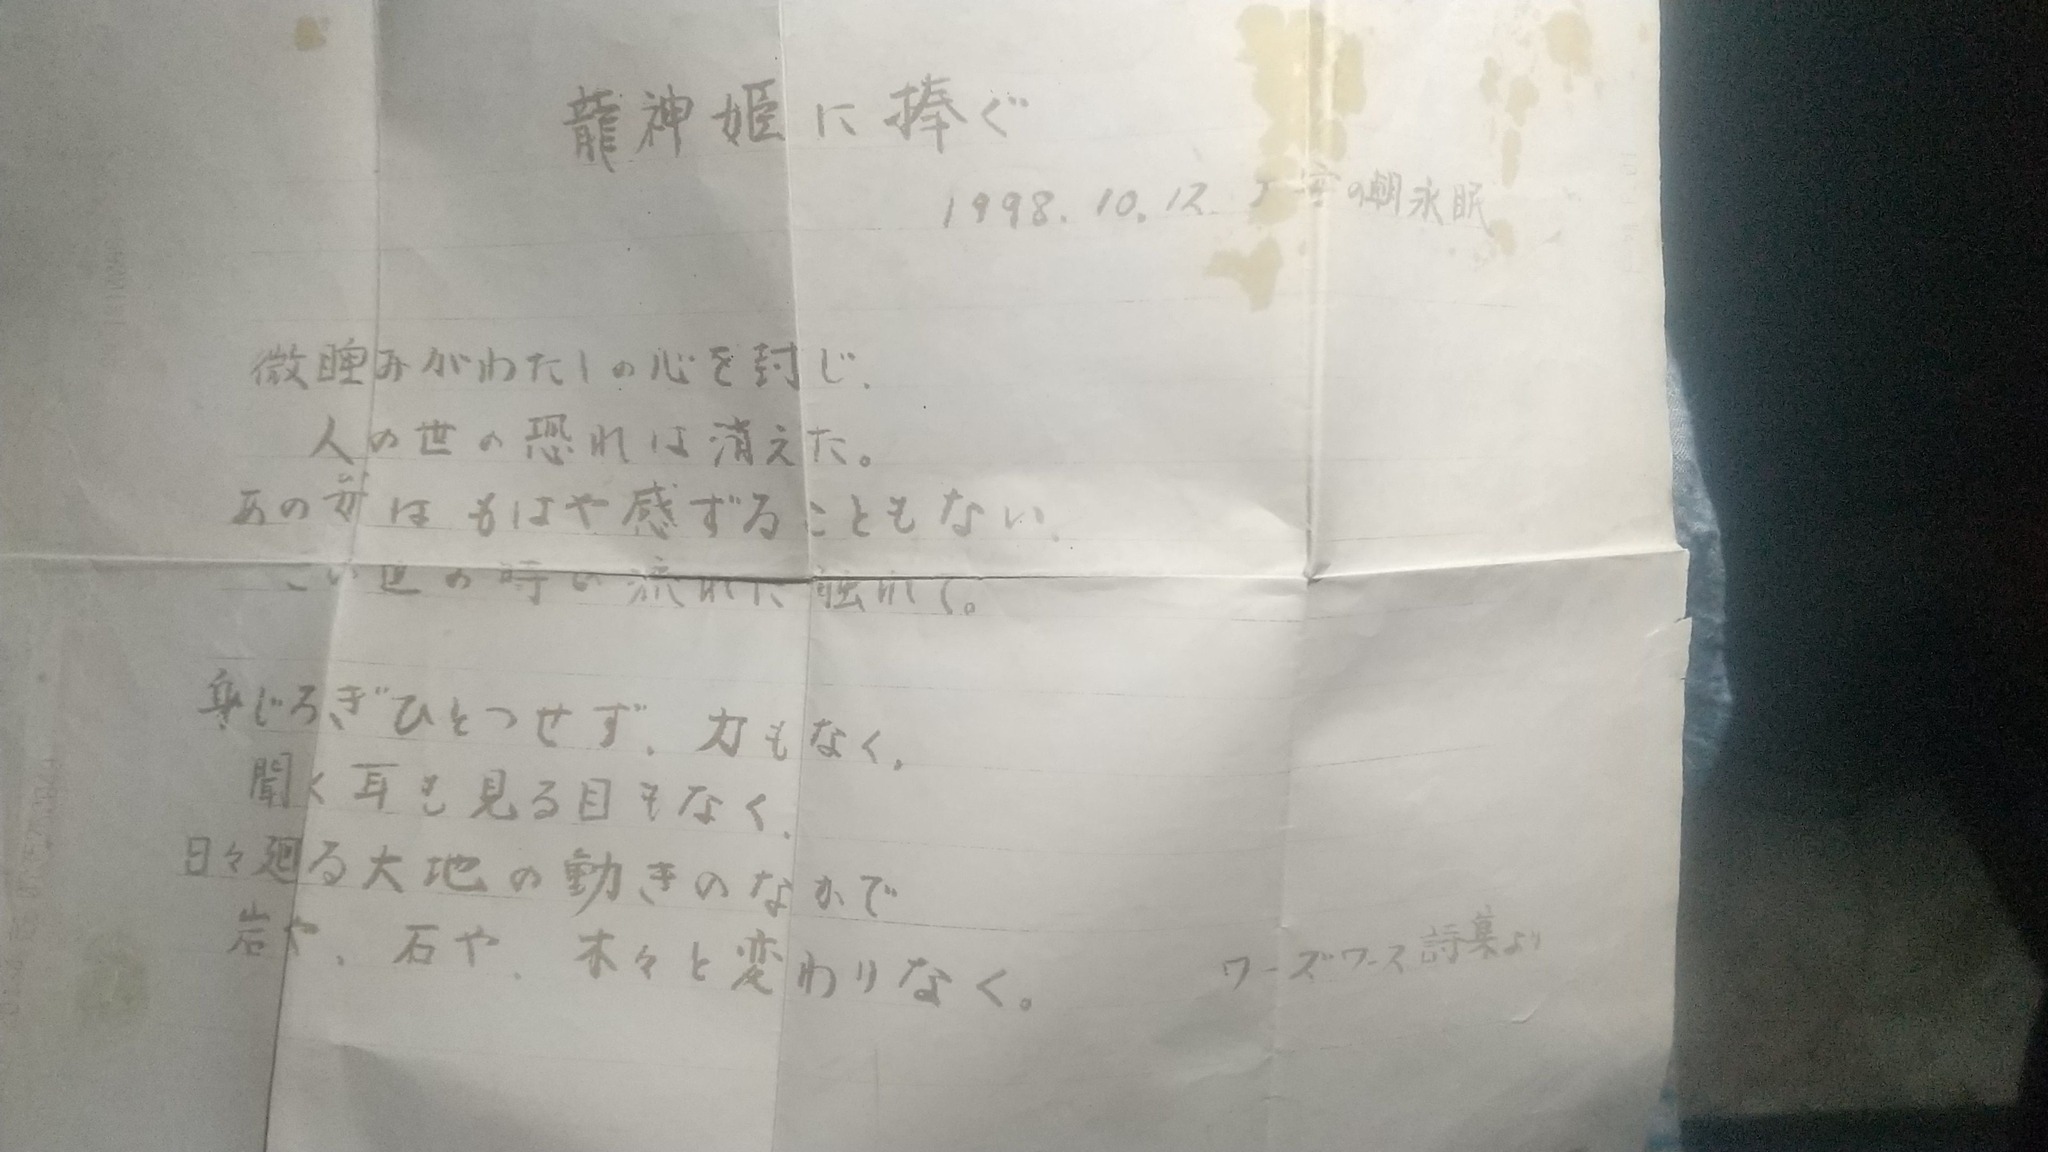 龍神姫に捧ぐ
1998.10.12 の朝永眠
微睡みがわたしの心を封じ、
人の世の恐れは消えた。
あの女はもはや感ずることもない、
この世の時の流れに触れて。
身じろぎひとつせず、力もなく、
聞く耳も見る目もなく、
日々廻る大地の動きのなかで
岩や、石や、木々と変わりなく。
ワーズワース詩集より